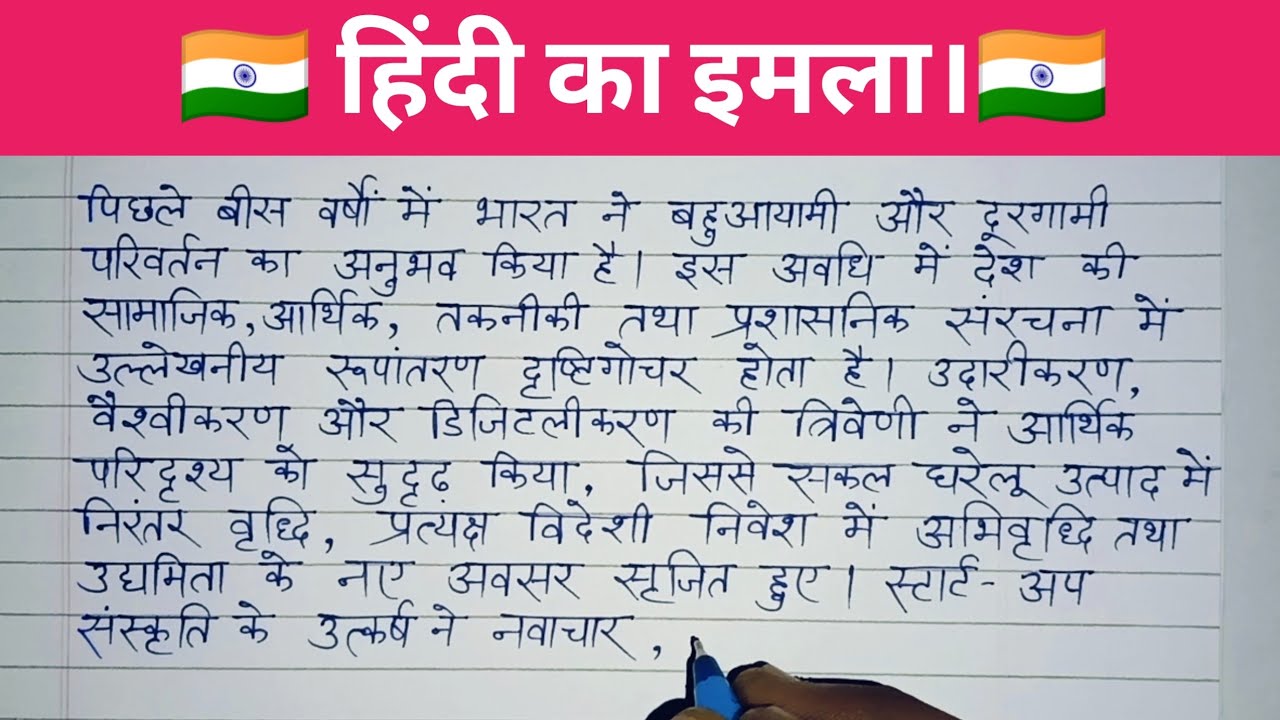 हिंदी का इमला।
पिछले बीस वर्षों में भारत ने बहुआयामी और दूरगामी
परिवर्तन का अनुभव किया है। इस अवधि में देश की
सामाजिक, आर्थिक, तकनीकी तथा प्रशासनिक संरचना में
उल्लेखनीय रूपांतरण दृष्टिगोचर होता है। उदारीकरण,
वैश्वीकरण और डिजिटलीकरण की त्रिवेणी ने आर्थिक
परिदृश्य को सुदृढ़ किया, जिससे सकल घरेलू उत्पाद में
निरंतर वृद्धि, प्रत्यक्ष विदेशी निवेश में अभिवृद्धि तथा
उद्यमिता के नए अवसर सृजित हुए। स्टार्ट-अप
संस्कृति के उत्कर्ष ने नवाचार,